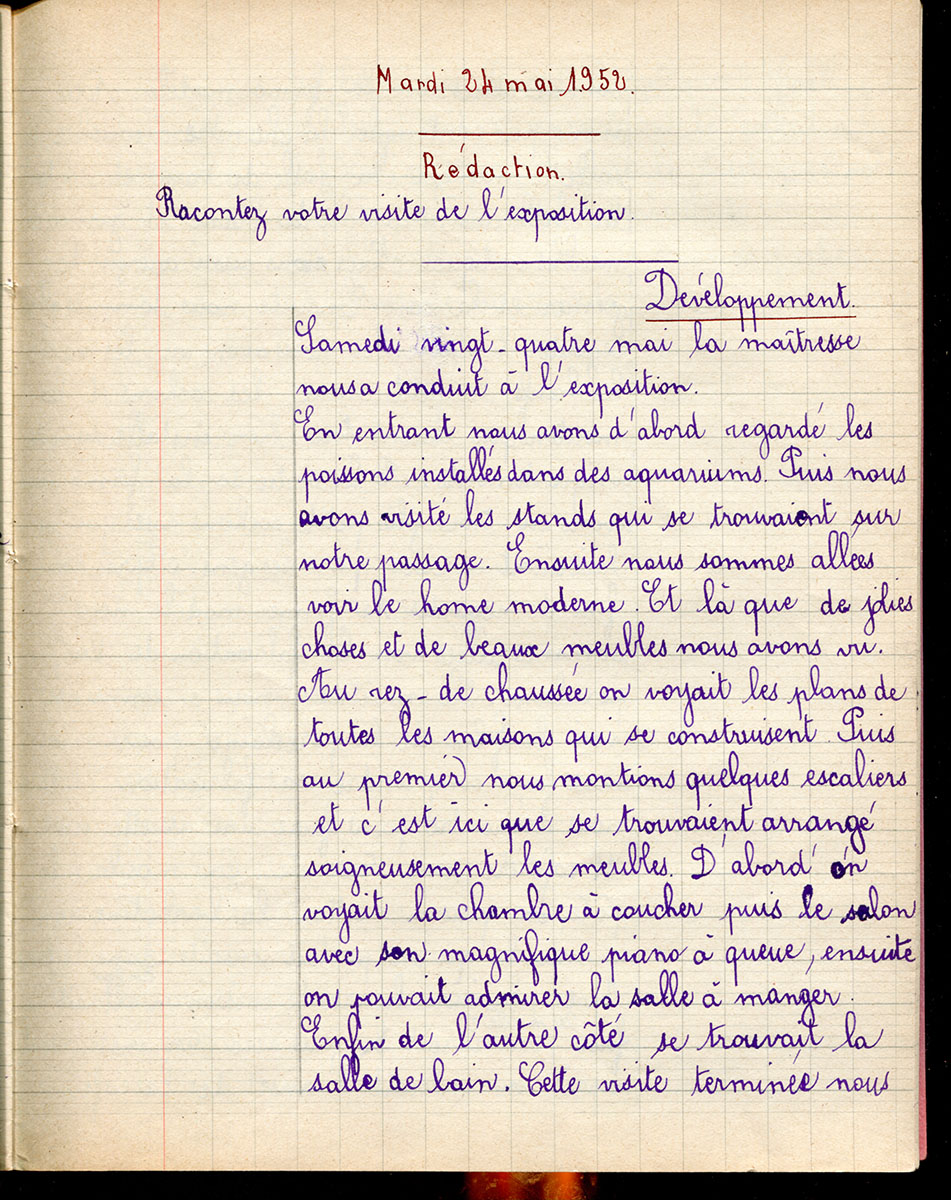 Mardi 24 mai 1952.
Rédaction.
Racontez votre visite de l'exposition.
Développement.
Samedi vingt-quatre mai la maîtresse
nous a conduit à l'exposition.
En entrant nous avons d'abord regardé les
poissons installés dans des aquariums. Puis nous
avons visité les stands qui se trouvaient sur
notre passage. Ensuite nous sommes allées
voir le home moderne. Et là que de jolies
choses et de beaux meubles nous avons vu.
Au rez-de chaussée on voyait les plans de
toutes les maisons qui se construisent. Puis
au premier nous montions quelques escaliers
et c'est ici que se trouvaient arrangé
soigneusement les meubles. D'abord on
voyait la chambre à coucher puis le salon
avec son magnifique piano à queue, ensuite
on pouvait admirer la salle à manger.
Enfin de l'autre côté se trouvait la
salle de bain. Cette visite terminée nous